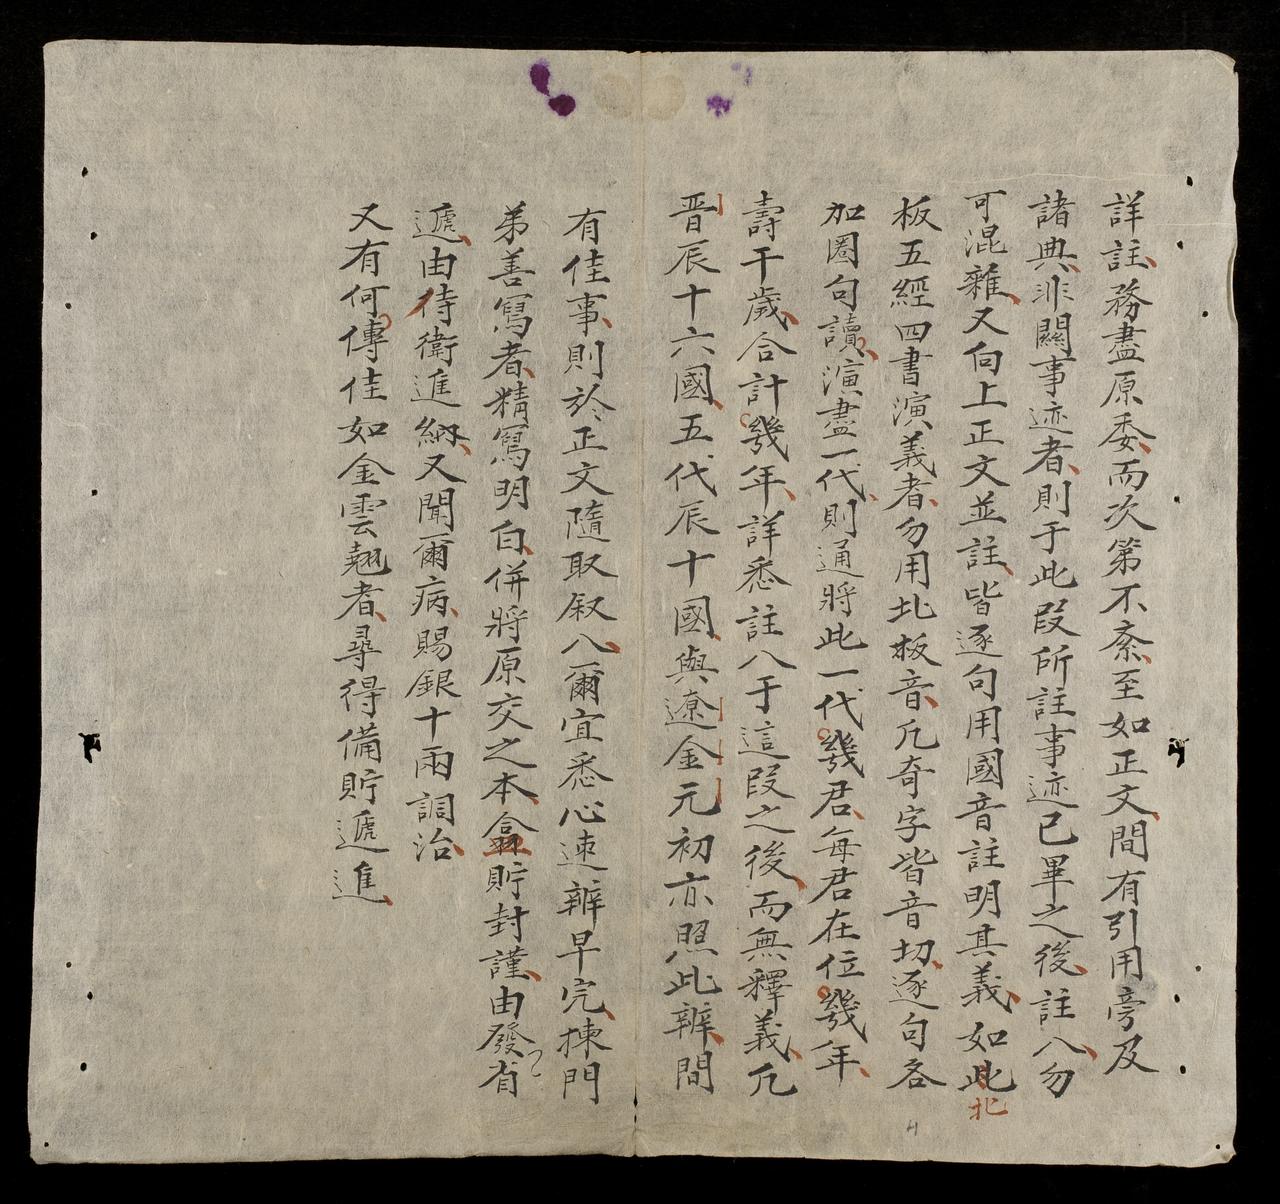 詳註務盡原委而次第不紊至如正文間有引用旁及
諸典非關事迹者則于此段所註事迹已畢之後註八勿
可混雜又向上正文並註皆逐句用國音註明其義如此
北
板五經四書演義者勿用北板音凡奇字皆音切逐句各
加圈句讀演盡一代則通將此一代幾君每君在位幾年
壽干歲合計幾年詳悉註八于這段之後而無釋義凡
晋辰十六國五代辰十國與遼金元初亦照此辦間
有佳事則於正文隨取叙八爾宜悉心速辦早完揀門
弟善寫者精寫明白併將原交之本盒貯封謹由發省
遞由侍衛進納又聞爾病賜銀十兩調治
又有何傳佳如金雲翹者尋得備貯遞進